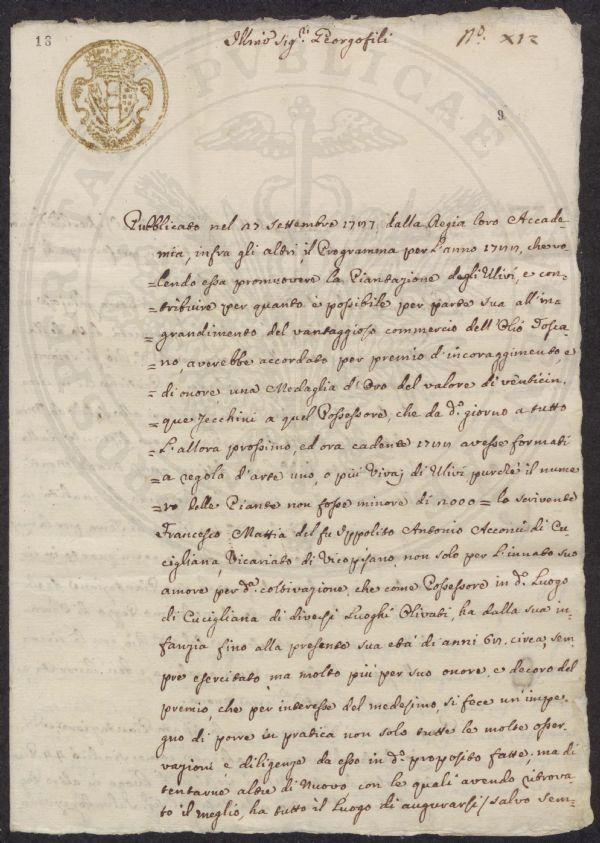 13
Illmi Sig.ri Georgofili
No. XIZ
9
UTILITATI PUBLICAE
Pubblicato nel 27 Settembre 1777 dalla Regia loro Accade-
mia, infra gli altri il Programma per l'anno 1777, che vo
=lendo essa promuovere la Piantazione degli Ulivi, e con-
=tribuire per quanto è possibile per parte sua all'in-
=grandimento del vantaggioso commercio dell'Olio Tosca-
=no, averebbe accordato per premio d'incoraggimento, e
=di onore una Medaglia d'Oro del valore di venticin-
=que Zecchini a quel Possessore, che da d.o giorno a tutto
=l'allora prossimo, ed ora cadente 1777 avesse formati
=a regola d'arte uno, o più Vivaj di Ulivi purchè il nume
=ro delle Piante non fosse minore di 2000= lo scrivente
Francesco Mattia del fu Ippolito Antonio Acconci di Cu-
cigliana, Vicariato di Vicopisano, non solo per l'innato suo
amore per d.a coltivazione, che come Possessore in d.o Luogo
di Cucigliana di diversi Luoghi Olivati, ha dalla sua in-
fanzia fino alla presente sua età di anni 67. circa, sem-
pre esercitato, ma molto più per suo onore, e decoro del
premio, che per interesse del medesimo, si fece un'impe-
gno di porre in pratica non solo tutte le molte osser-
vazioni, e diligenze da esso in d.o proposito fatte, ma di
tentarne altre di Nuovo, con le quali avendo ritrova-
to il meglio, ha tutto il Luogo di augurarsi / salvo sem-